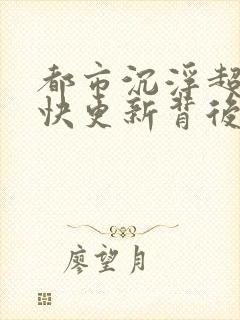 都市沉浮超
快更新背後
廖望月